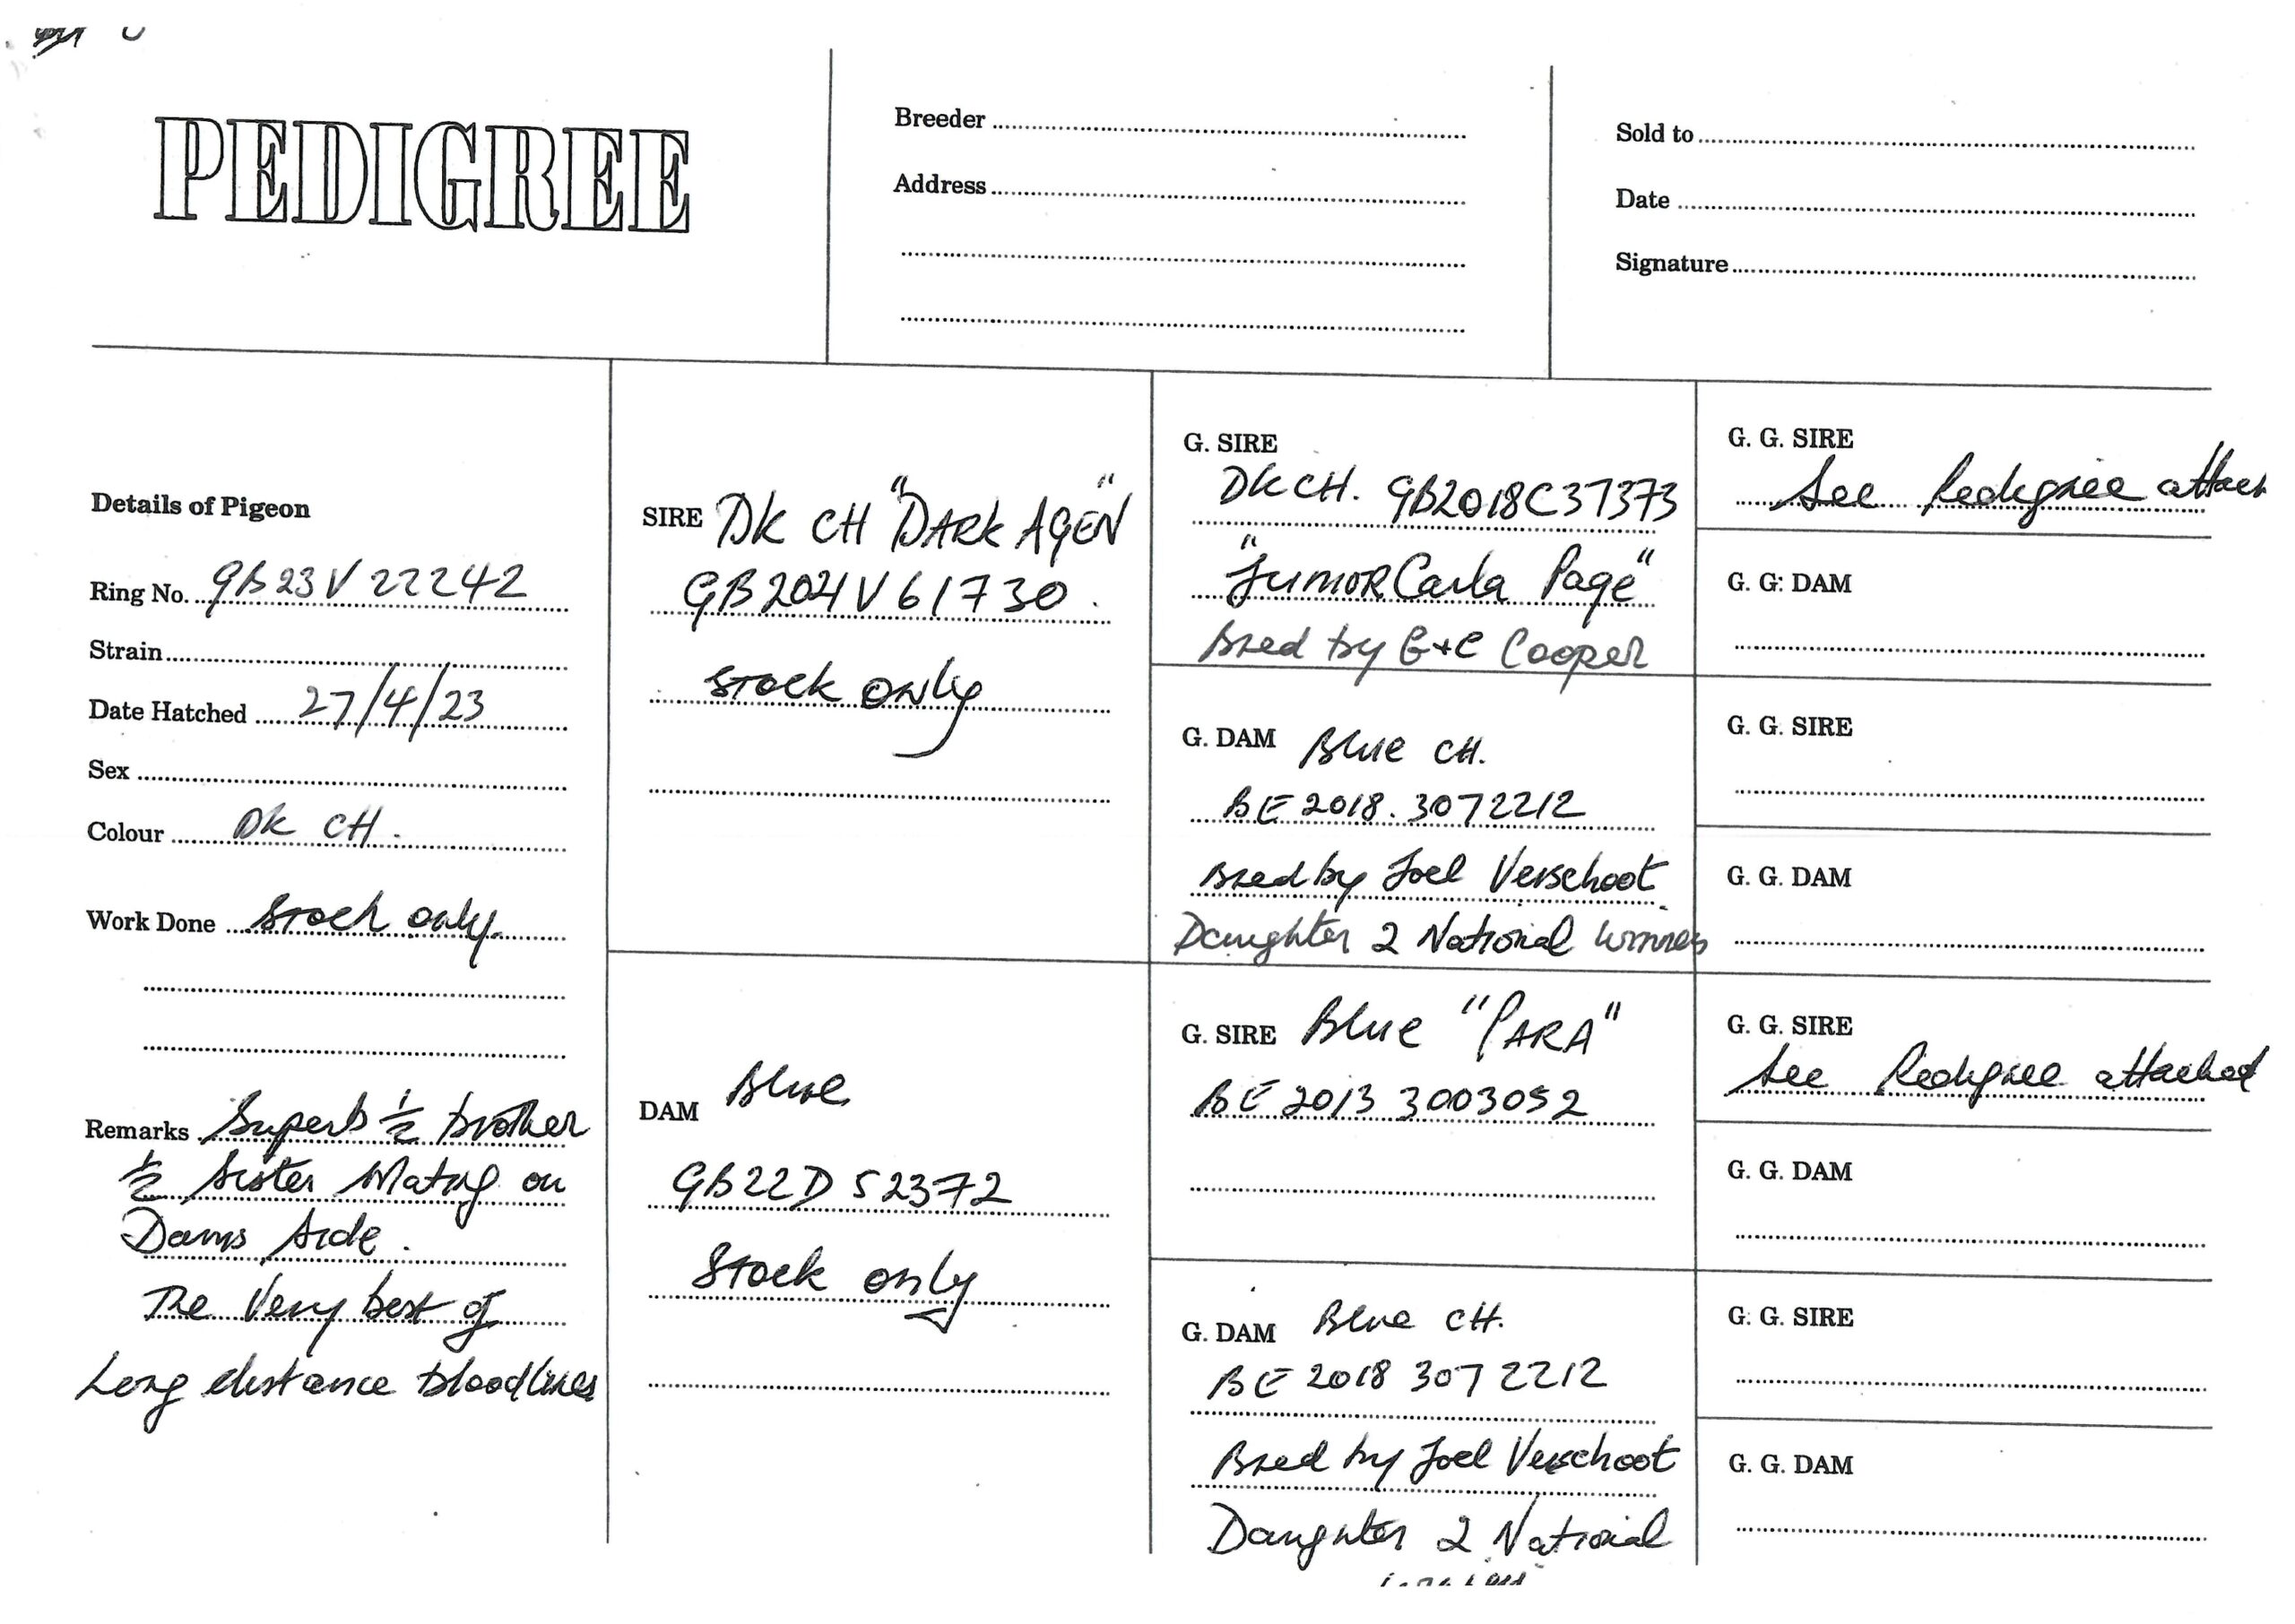 PEDIGREE
Breeder
Address
Sold to
Date
Signature
Details of Pigeon
Ring No. GB23V22242
Strain
Date Hatched 27/4/23
Sex
Colour DK CH.
Work Done Stock only.
Remarks Superb ½ brother
½ Sister Mating on
Dams Side.
The Very best of
Long distance bloodlines
SIRE DK CH "DARK AGEN"
V61730.
Stock only
DAM Blue
GB22D52372
Stock only
G. SIRE
DK CH. GB2018C37373
"JUNIOR Carla Page"
Bred by G+C Cooper
G. DAM Blue CH.
BE2018.3072212
Bred by Joel Verschoot
Daughter 2 National Winners
G. SIRE Blue "PARA"
BE 2013 3003052
G. DAM Blue CH.
BE 2018 3072212
Bred by Joel Verschoot
Daughter 2 National
G. G. SIRE
See Pedigree attach
G. G: DAM
G. G. SIRE
G. G. DAM
G. G. SIRE
See Pedigree attached
G. G. DAM
G. G. SIRE
G. G. DAM